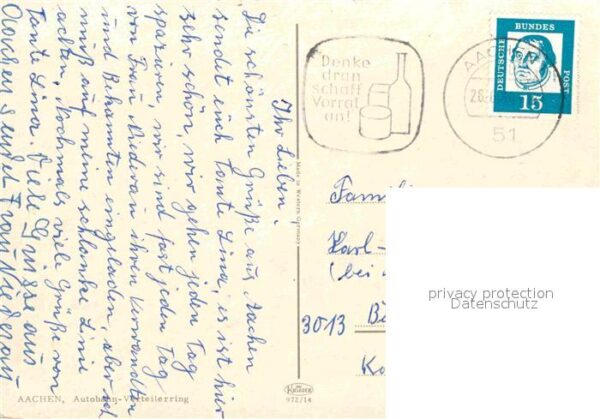 Ihr Lieben,
Die schönsten Grüße aus Aachen
sendet euch Tante Lina, es ist hier
sehr schön, wir gehen jeden Tag
spazieren, wir sind fast jeden Tag
von Frau Niederau ihren Verwandten
und Bekannten eingeladen, aber ich
muß auf meine schlanke Linie
achten, Nochmals viele Grüße von
Tante Lina. Viele Grüsse aus
Aachen sendet Frau Niederau
AACHEN, Autobahn-Verteilerring
Made in Western Germany
KRÜGER
972/14
Denke
dran
schaff
Vorrat
an!
AACHEN
51
DEUTSCHE
BUNDES
POST
15
Familie
Karl-
(bei
3013
privacy protection
Datenschutz